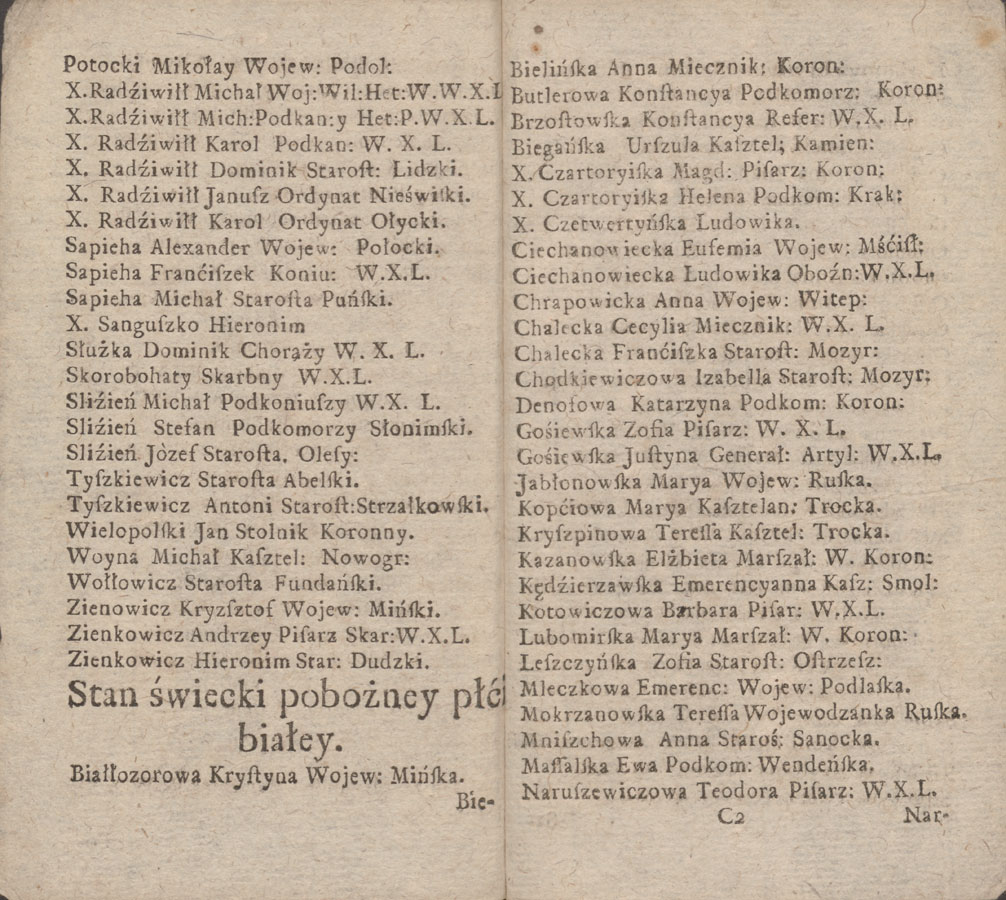 Potocki Mikołay Wojew: Podol:
X.Radźiwiłł Michał Woj:Wil:Het:W.W.X.L
X.Radźiwiłł Mich:Podkan:y Het:P.W.X.L.
X. Radźiwiłł Karol Podkan: W. X. L.
X. Radźiwiłł Dominik Staroſt: Lidzki.
X. Radźiwiłł Janusz Ordynat Nieświſki.
X. Radźiwiłł Karol Ordynat Ołycki.
Sapieha Alexander Wojew: Połocki.
Sapieha Franćiſzek Koniu: W.X.L.
Sapieha Michał Staroſta Puński.
X. Sanguſzko Hieronim
Służka Dominik Chorąży W. X. L.
Skorobohaty Skarbny W.X.L.
Sliźień Michał Podkoniuſzy W.X. L.
Sliźień Stefan Podkomorzy Słonimſki.
Sliźień Józef Staroſta. Oleſy:
Tyſzkiewicz Staroſta Abelſki.
Tyſzkiewicz Antoni Staroſt:Strzałkowſki.
Wielopolſki Jan Stolnik Koronny.
Woyna Michał Kaſztel: Nowogr:
Wołłowicz Staroſta Fundańſki.
Zienowicz Kryzſztof Wojew: Mińſki.
Zienkowicz Andrzey Piſarz Skar:W.X.L.
Zienkowicz Hieronim Star: Dudzki.
Stan świecki pobożney płći
białey.
Białłozorowa Kryſtyna Wojew: Mińſka.
Bie-
Bielińſka Anna Miecznik: Koron:
Butlerowa Konſtancya Podkomorz: Koron:
Brzoſtowſka Konſtancya Refer: W.X. L.
Biegańſka Urſzula Kaſztel; Kamien:
X. Czartoryiſka Magd: Piſarz: Koron:
X. Czartoryiſka Helena Podkom: Krak:
X. Czetwertyńſka Ludowika.
Ciechanowiecka Eufemia Wojew: Mśćiſł:
Ciechanowiecka Ludowika Oboźn:W.X.L.
Chrapowicka Anna Wojew: Witep:
Chalecka Cecylia Miecznik: W.X. L.
Chalecka Franćiſzka Staroſt: Mozyr:
Chodkiewiczowa Izabella Staroſt: Mozyr:
Denofowa Katarzyna Podkom: Koron:
Gośiewſka Zofia Piſarz: W. X. L.
Gośiewſka Juſtyna Generał: Artyl: W.X.L.
Jabłonowſka Marya Wojew: Ruſka.
Kopćiowa Marya Kaſztelan: Trocka.
Kryſzpinowa Tereſſa Kaſztel: Trocka.
Kazanowſka Elżbieta Marſzał: W. Koron:
Kędźierzawſka Emerencyanna Kaſz: Smol:
Kotowiczowa Barbara Piſar: W.X.L.
Lubomirſka Marya Marſzał: W. Koron:
Leſzczyńſka Zofia Staroſt: Oſtrzeſz:
Mleczkowa Emerenc: Wojew: Podlaſka.
Mokrzanowſka Tereſſa Wojewodzanka Ruſka.
Mniſzchowa Anna Staroś: Sanocka.
Maſſalſka Ewa Podkom: Wendeńſka.
Naruſzewiczowa Teodora Piſarz: W.X.L.
C2
Nar-